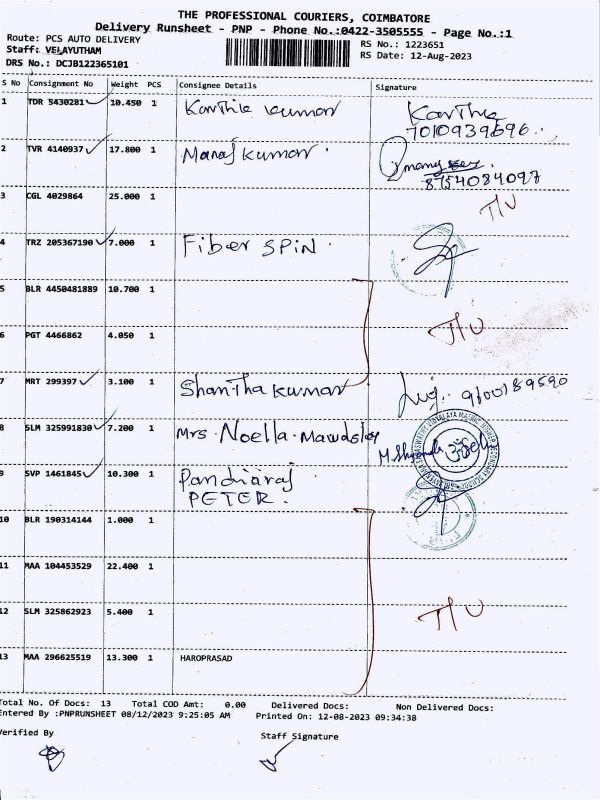 THE PROFESSIONAL COURIERS, COIMBATORE
Delivery Runsheet - PNP - Phone No.:0422-3505555 - Page No.:1
Route: PCS AUTO DELIVERY
Staff: VELAYUTHAM
DRS No.: DCJB122365101
RS No.: 1223651
RS Date: 12-Aug-2023
S No Consignment No Weight PCS Consignee Details Signature
1 TDR 5430281 10.450 1 Karthik kumar Karthik
7010939696
2 TVR 4140937 17.800 1 Manaj kumar
8754084097
3 CGL 4029864 25.000 1 T/U
4 TRZ 205367190 7.000 1 Fiber SPIN
5 BLR 4450481889 10.700 1
T/U
6 PGT 4466862 4.050 1
7 MRT 299397 3.100 1 Shantha kumar 9600189590
8 SLM 325991830 7.200 1 Mrs. Noella. Mawdsley
9 SVP 1461845 10.300 1 Pandiaraj
PETER.
10 BLR 190314144 1.000 1
11 MAA 104453529 22.400 1
12 SLM 325862923 5.400 1 T/U
13 MAA 296625519 13.300 1 HAROPRASAD
Total No. Of Docs: 13 Total COD Amt: 0.00 Delivered Docs: Non Delivered Docs:
Entered By :PNPRUNSHEET 08/12/2023 9:25:05 AM Printed On: 12-08-2023 09:34:38
Verified By Staff Signature